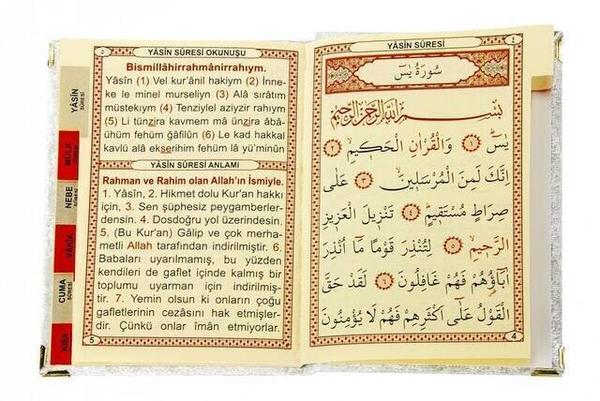 YÂSİN SÛRESİ OKUNUŞU
Bismillâhirrahmânirrahıym.
Yâsîn (1) Vel kur'ânil hakiym (2) İnne-
ke le minel murseliyn (3) Alâ sırâtım
müstekıym (4) Tenziylel aziyzir rahıym
(5) Li tünzira kavmem mâ ünzira âbâ-
ühüm fehüm ğâfilûn (6) Le kad hakkal
kavlü alâ ekserihim fehüm lâ yü'minûn
YÂSİN SÛRESİ ANLAMI
Rahman ve Rahim olan Allah'ın İsmiyle.
1. Yâsîn, 2. Hikmet dolu Kur'an hakkı
için, 3. Sen şüphesiz peygamberler-
densin. 4. Dosdoğru yol üzerindesin.
5. (Bu Kur'an) Gâlip ve çok merha-
metli Allah tarafından indirilmiştir. 6.
Babaları uyarılmamış, bu yüzden
kendileri de gaflet içinde kalmış bir
toplumu uyarman için indirilmiş-
tir. 7. Yemin olsun ki onların çoğu
gafletlerinin cezâsını hak etmişler-
dir. Çünkü onlar îmân etmiyorlar.
5
YÂSİN
SÛRESİ
MÜLK
NEBE
VÂKIA
CUMA
SÛRESİ
KISA
YÂSİN SÛRESİ
٤
سُورَةُ يٰسٓ
بِسْمِ اللّٰهِ الرَّحْمٰنِ الرَّحِيمِ
يٰسٓ ﴿١﴾ وَالْقُرْاٰنِ الْحَكِيمِ ﴿٢﴾
اِنَّكَ لَمِنَ الْمُرْسَلِينَ ﴿٣﴾ عَلٰى
صِرَاطٍ مُسْتَقِيمٍ ﴿٤﴾ تَنْزِيلَ الْعَزِيزِ
الرَّحِيمِ ﴿٥﴾ لِتُنْذِرَ قَوْمًا مَٓا اُنْذِرَ
اٰبَٓاؤُ۬هُمْ فَهُمْ غَافِلُونَ ﴿٦﴾ لَقَدْ حَقَّ
الْقَوْلُ عَلٰٓى اَكْثَرِهِمْ فَهُمْ لَا يُؤْمِنُونَ
4